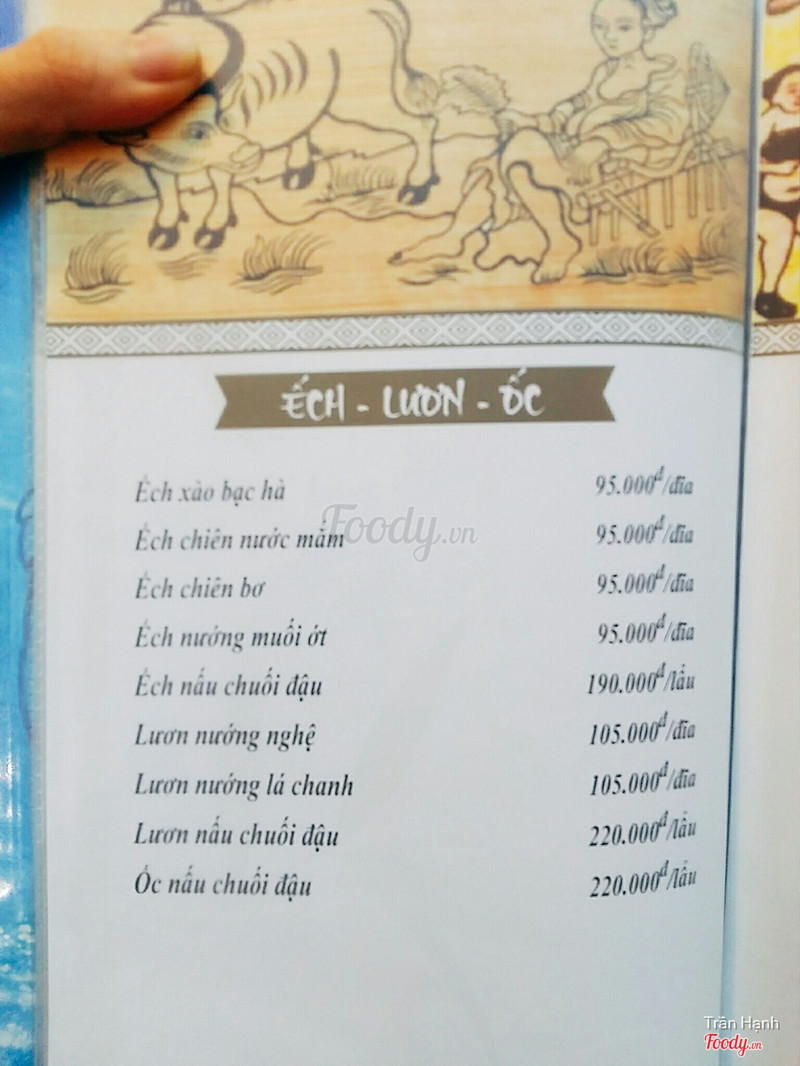 ẾCH - LƯƠN - ỐC
Ếch xào bạc hà 95.000đ/đĩa
Ếch chiên nước mắm 95.000đ/đĩa
Ếch chiên bơ 95.000đ/đĩa
Ếch nướng muối ớt 95.000đ/đĩa
Ếch nấu chuối đậu 190.000đ/lẩu
Lươn nướng nghệ 105.000đ/đĩa
Lươn nướng lá chanh 105.000đ/đĩa
Lươn nấu chuối đậu 220.000đ/lẩu
Ốc nấu chuối đậu 220.000đ/lẩu
Foody.vn
Trần Hạnh
Foody.vn